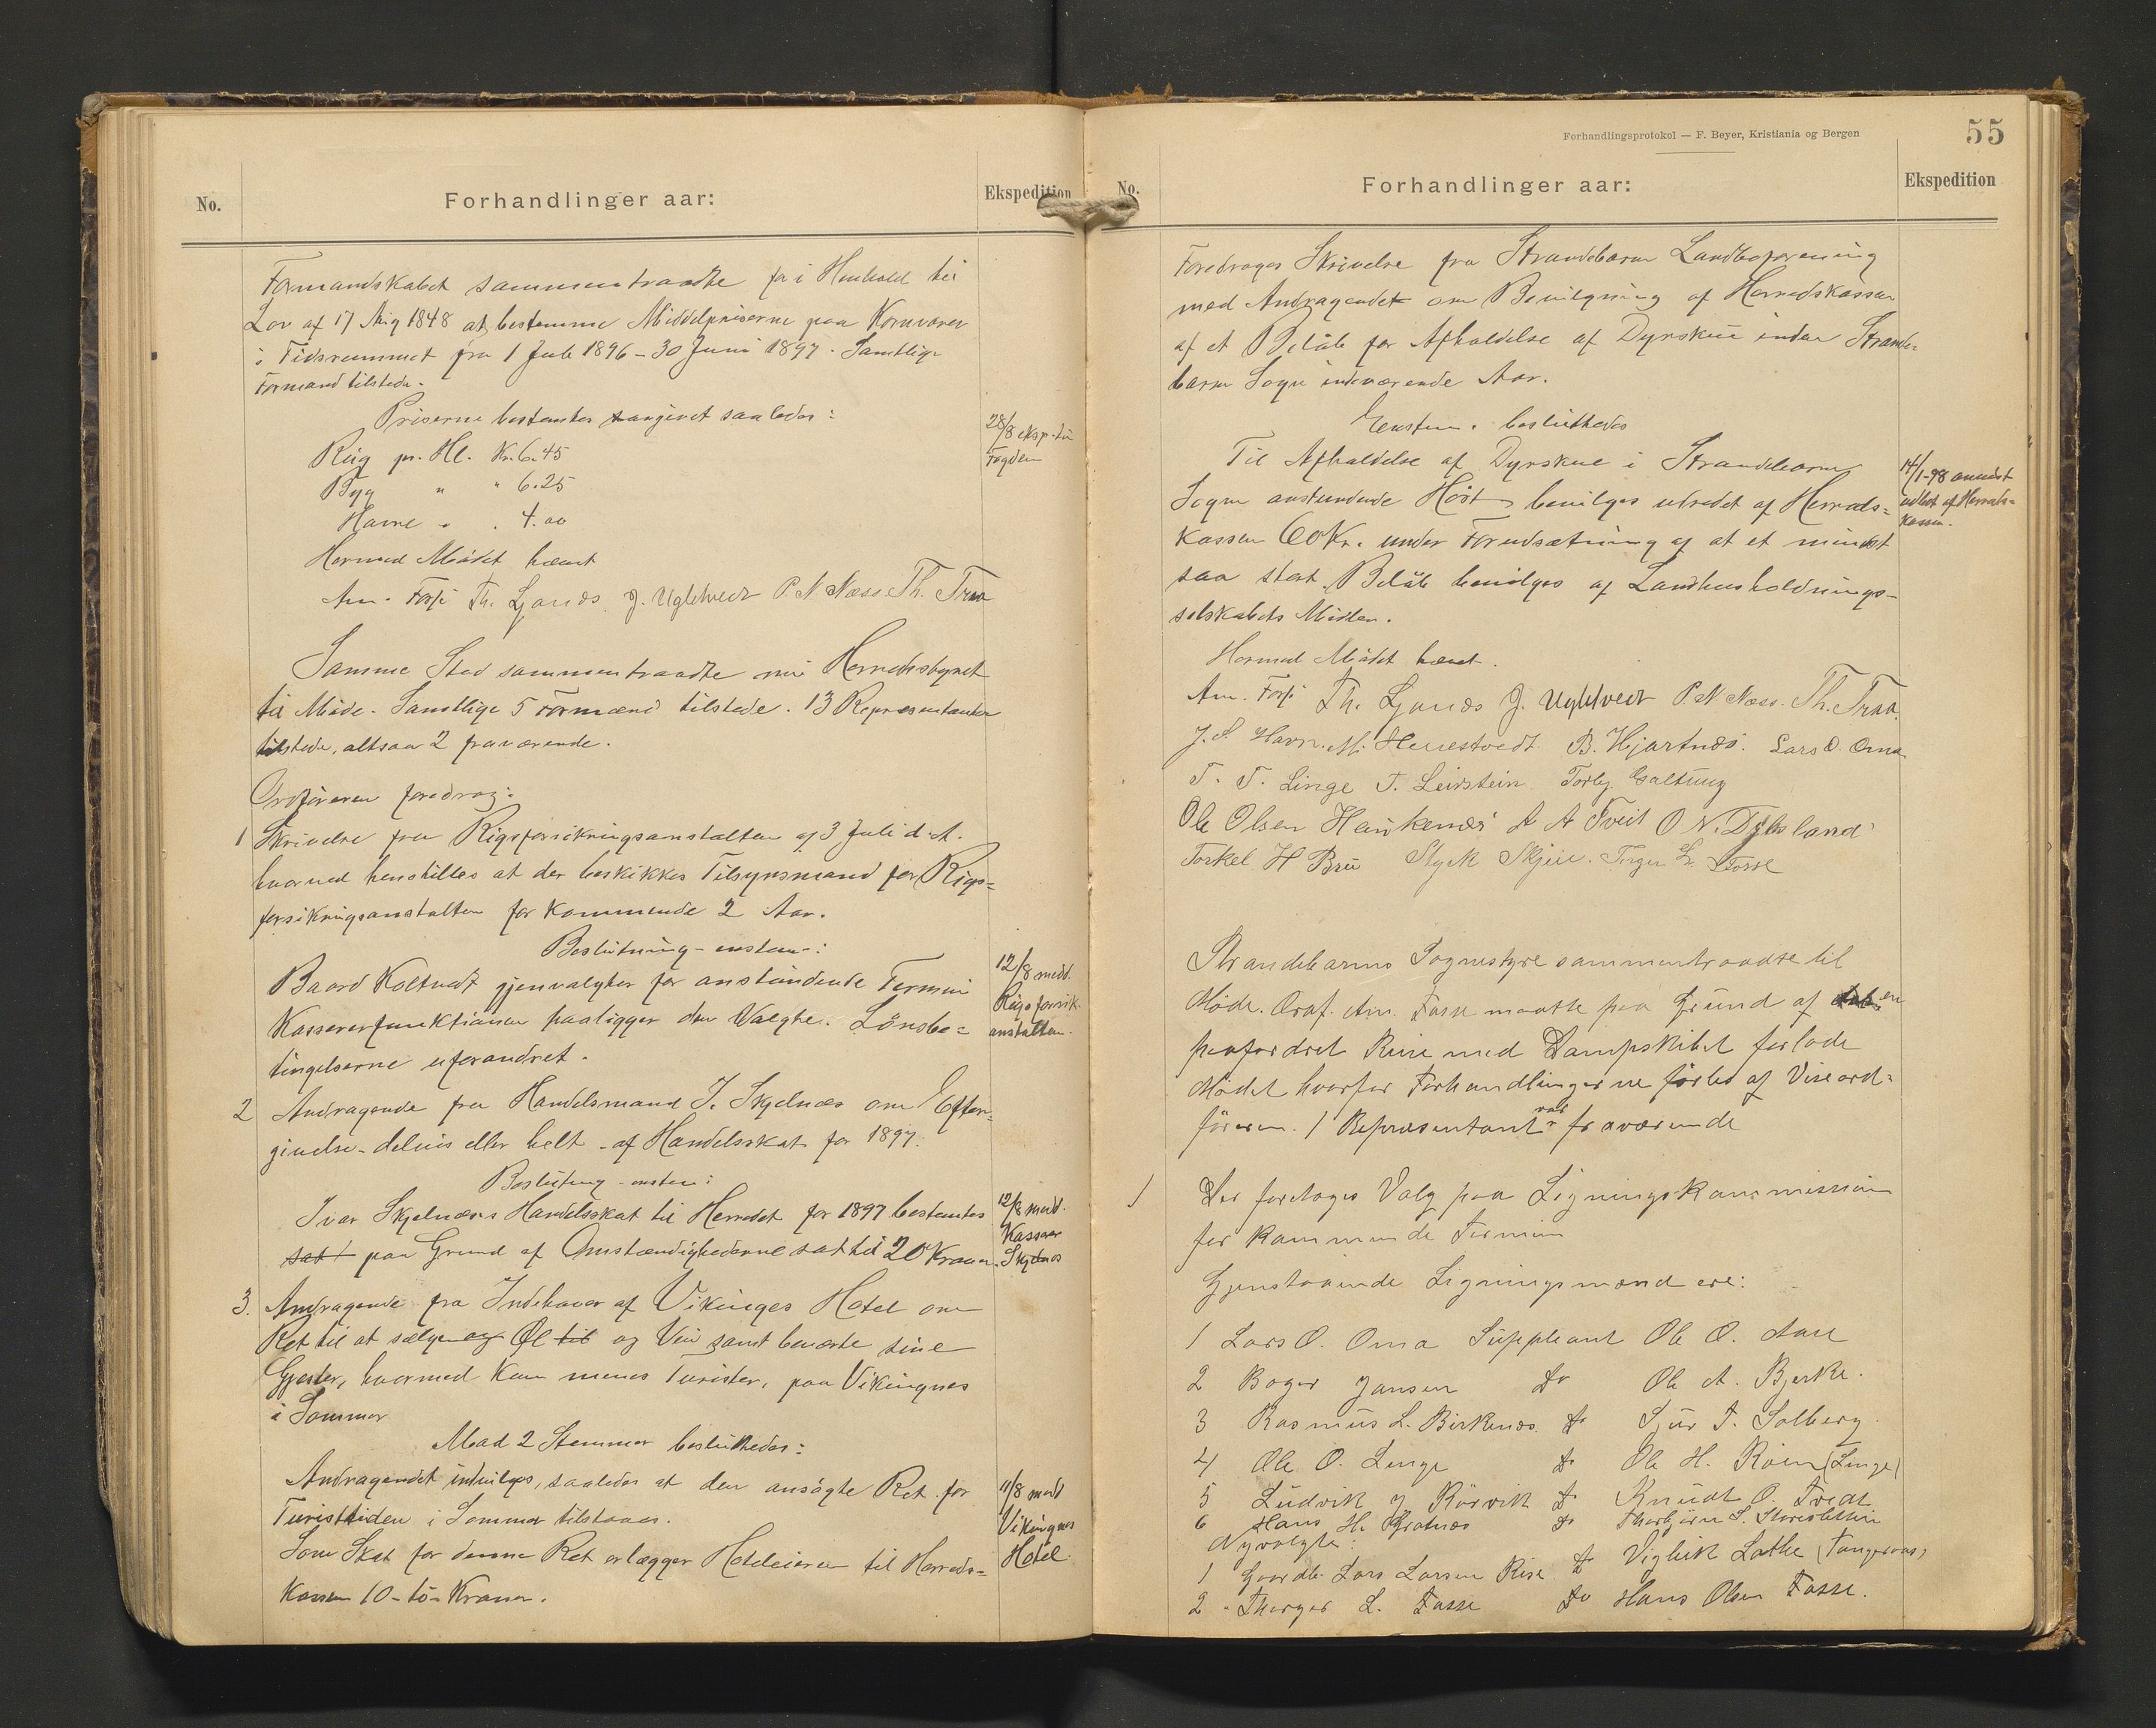 No.
Forhandlinger aar:
Ekspedition
Formandskabet sammentraadte for i Henhold til
Lov af 17 Aug 1848 at bestemme Middelpriserne paa Kornvarer
i Tidsrummet fra 1 Juli 1896 - 30 Juni 1897. Samtlige
Formænd tilstede.
Priserne bestemtes angivet saaledes:
Rug pr. Hl. Kr. 6.45
Byg " " 6.25
Havre " . 4.00
28/8 eksp. til
Fogden
Hermed Mødet hævet
Am. Fosse Th. Ljones J. Ugletvedt P. N. Næss. Th. Traa
Samme Sted sammentraadte nu Herredsstyret
til Møde. Samtlige 5 Formænd tilstede. 13 Repræsentanter
tilstede, altsaa 2 fraværende.
Ordføreren foredrog:
1 Skrivelse fra Rigsforsikringsanstalten af 3 Juli d. A.
hvorved henstilles at der beskikkes Tilsynsmand for Rigs=
forsikringsanstalten for kommende 2 Aar.
Beslutning - enstem.:
Baard Koltvedt gjenvalgtes for anstundende Termin
Kassererfunktionen paaligger den Valgte. Lønsbe=
tingelserne uforandret.
12/8 medd.
Rigsforsik.
anstalten.
2 Andragende fra Handelsmand I. Skjelnæs om Efter=
givelse - delvis eller helt - af Handelsskat for 1897.
Beslutning - enstem:
Ivar Skjelnæs's Handelsskat til Herredet for 1897 bestemtes
sat paa Grund af Omstændighederne sat til 20 Kroner.
12/8 medd.
Kasserer
Skjelnæs
3. Andragende fra Indehaver af Vikinges Hotel om
Ret til at sælge og Øl til og Vin samt beværte sine
Gjester, hvormed kun menes Turister, paa Vikingnes
i Sommer
Mod 2 Stemmer besluttedes:
Andragendet indvilges, saaledes at den ansøgte Ret for
Turisttiden i Sommer tilstaaes.
Som Skat for denne Ret erlægger Hoteleieren til Herreds=
kassen 10 - ti - Kroner.
11/8 medd
Vikingnes
Hotel
Forhandlingsprotokol — F. Beyer, Kristiania og Bergen
55
No.
Forhandlinger aar:
Ekspedition
Foredroges Skrivelse fra Strandebarm Landboforening
med Andragendet om Bevilgning af Herredskassen
af et Beløb for Afholdelse af Dyrskue inden Strande=
barm Sogn indeværende Aar.
Enstem. besluttedes
Til Afholdelse af Dyrskue i Strandebarm
Sogn anstundende Høst bevilges udredet af Herreds=
kassen 60 Kr. under Forudsætning af at et mindst
saa stort Beløb bevilges af Landhusholdnings-
selskabets Midler.
14/1-98 anvist
udbet af Herreds=
kassen.
Hermed Mødet hævet.
Am. Fosse Th. Ljones J. Ugletvedt P. N. Næss. Th. Traa.
J. S. Havn. M. Henestvedt. B. Hjartnæs. Lars O. Oma
T. T. Linge T. Leirstein Torbj. Galtung
Ole Olsen Haukenæs A A Tveit O N. Dysland
Torkel H Bru Styrk Skjeie. Torger L. Fosse
Strandebarms Sognestyre sammentraadte til
Møde. Ordf. Am. Fosse maatte paa Grund af en
paafordret Reise med Dampskibet forlade
Mødet hvorfor Forhandlingerne førtes af Viseord=
føreren. 1 Repræsentant var fraværende
1 Der foretoges Valg paa Ligningskommission
for kommende Termin
Gjenstaaende Ligningsmænd ere:
1 Lars O. Oma Suppleant Ole O. Aase
2 Boger Jansen Do Ole A. Bjerke.
3 Rasmus L. Birkenæs. Do Sjur T. Solberg.
4 Ole O. Linge Do Ole H. Roen (Linge)
5 Ludvik J. Rørvik Do Knudt O. Tvedt
6 Hans H. Do Thorbjørn S.
Nyvalgte:
1 Gaardb. Lars Larsen Rise Do Vigleik Lothe (Tangeraas)
2 " Thorger L. Fosse Do Hans Olsen Fosse.